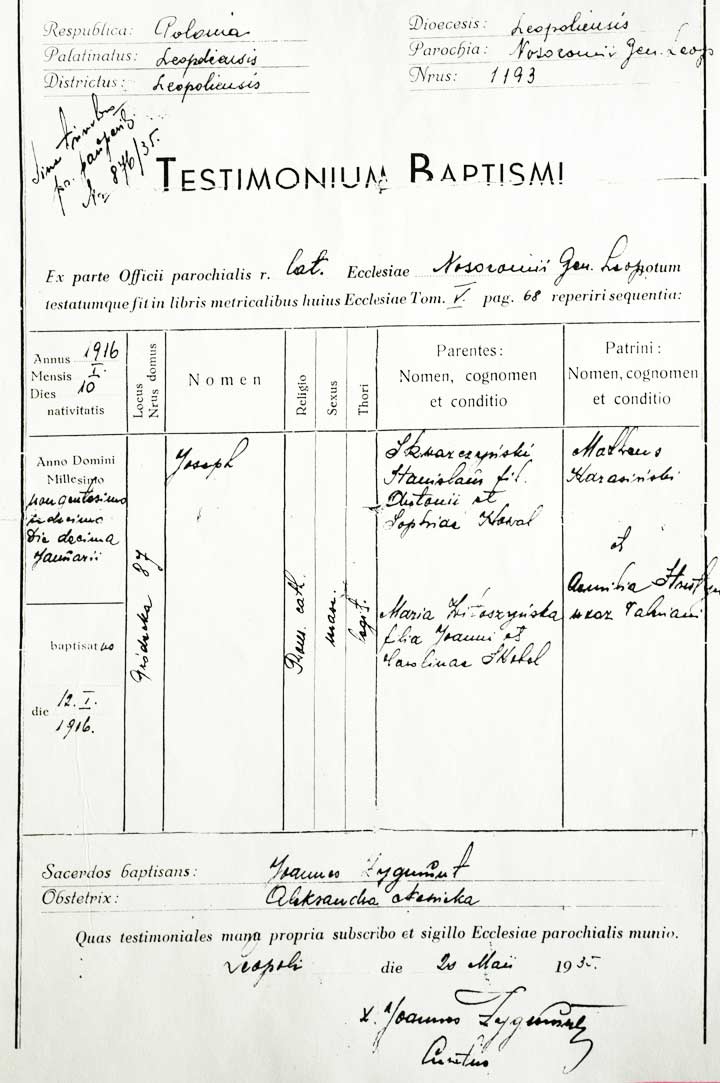 Respublica: Polonia
Palatinatus: Leopoliensis
Districtus: Leopoliensis
Dioecesis: Leopoliensis
Parochia: Nosocomii Gen. Leop
Nrus: 1193
Sine
pr.
Nr 876/35.
TESTIMONIUM BAPTISMI
Ex parte Officii parochialis r. lat. Ecclesiae Nosocomii Gen. Leop otum
testatumque fit in libris metricalibus huius Ecclesiae Tom. V. pag. 68 reperiri sequentia:
Annus 1916
Mensis I.
Dies 10
nativitatis
Locus
Nrus domus
Nomen
Religio
Sexus
Thori
Parentes:
Nomen, cognomen
et conditio
Patrini:
Nomen, cognomen
et conditio
Anno Domini
Millesimo
nongentesimo
Die decima
Januarii
baptisatus
die 12. I.
1916.
Gródecka 87
Joseph
Rom. cath.
masc.
legit.
Skwarczyński
Stanislaus fil.
Antonii et
Sophiae Kowal
Maria
filia Joanni et
Carolinae Skobel
Matheus
Karasiński
et
Aemilia
uxor
Sacerdos baptisans: Joannes Zygmunt
Obstetrix: Aleksandra
Quas testimoniales manu propria subscribo et sigillo Ecclesiae parochialis munio.
Leopoli die 20 Maii 1935.
X. Joannes Zygmunt